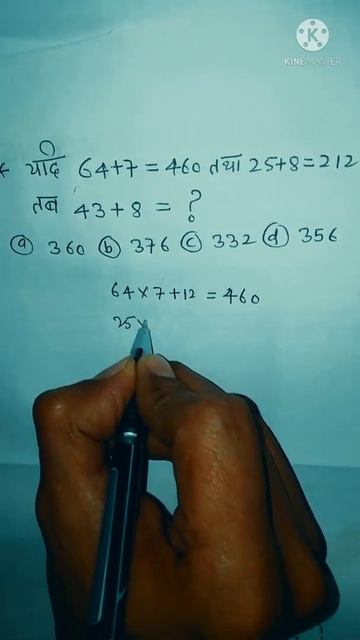 K
KINEMASTER
* यदि 64+7=460 तथा 25+8=212
तब 43+8 = ?
ⓐ 360 ⓑ 376 ⓒ 332 ⓓ 356
64×7+12 = 460
25×